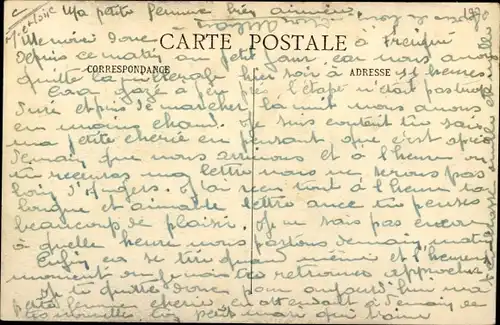 Ma petite femme bien aimée
CARTE POSTALE
Me voici donc à Freigné
depuis ce matin au petit jour, car nous avons
CORRESPONDANCE
ADRESSE
quitté la hier soir à 11 heures
Ca a gazé à peu près l'étape n'était pas trop
dure et puis de marcher la nuit nous avons
eu moins chaud. Je suis content tu sais
ma petite chérie en pensant que c'est après
demain que nous arrivons et à l'heure où
tu recevras ma lettre nous ne serons pas
loin d'Angers. J'ai reçu tout à l'heure ta
longue et aimable lettre avec tu penses
beaucoup de plaisir. Je ne sais pas encore
à quelle heure nous partons demain matin
Enfin ca se tire quand même et l'heureux
moment où je vais te retrouver approche
Je te quitte donc pour aujourd'hui ma
petite femme chérie en attendant à demain de
tes nouvelles. Ton petit man qui t'aime